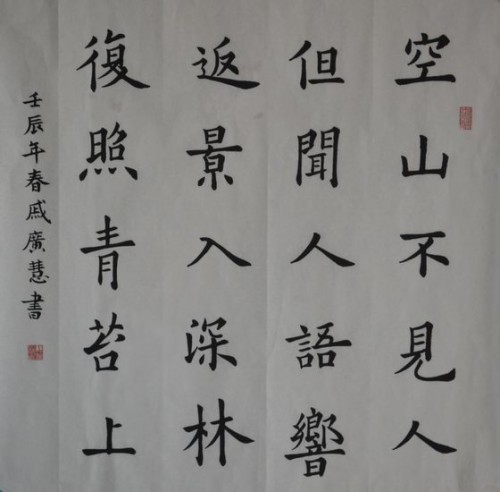 空山不見人
但聞人語響
返景入深林
復照青苔上
壬辰年春戚廣慧書